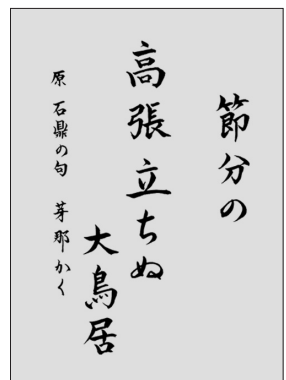 節分の
高張立ちぬ
大鳥居
原 石鼎の句 芽那かく